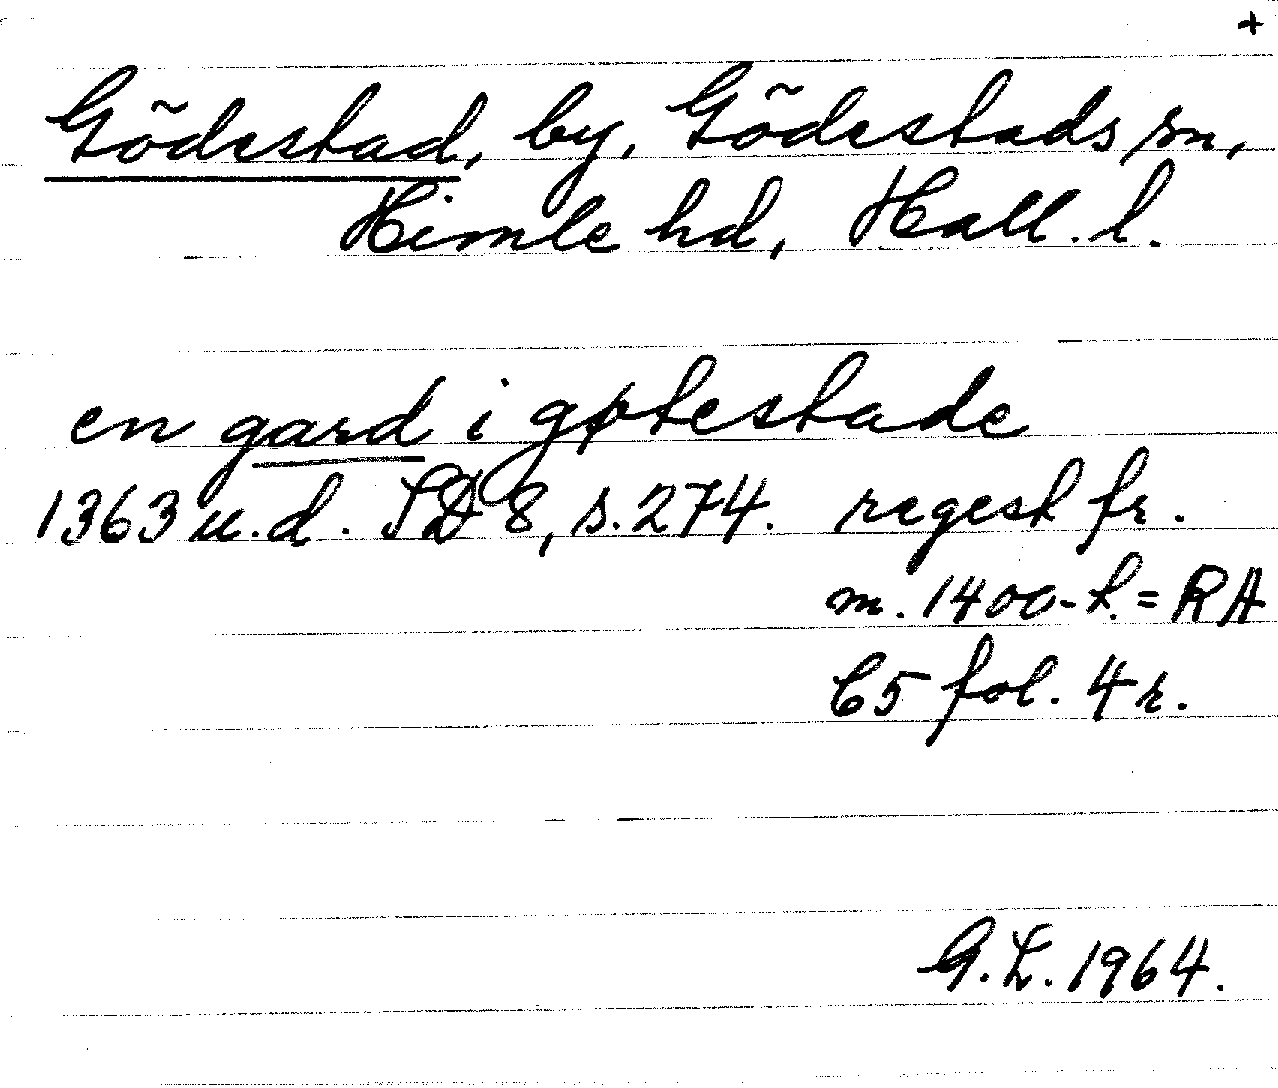 +
Gödestad, by, Gödestads sn,
Himle hd, Hall. l.
en gard i gøtestade
1363 u.d. SD 8, s. 274. regest fr.
m. 1400-t. = RA
C5 fol. 4r.
G.L. 1964.